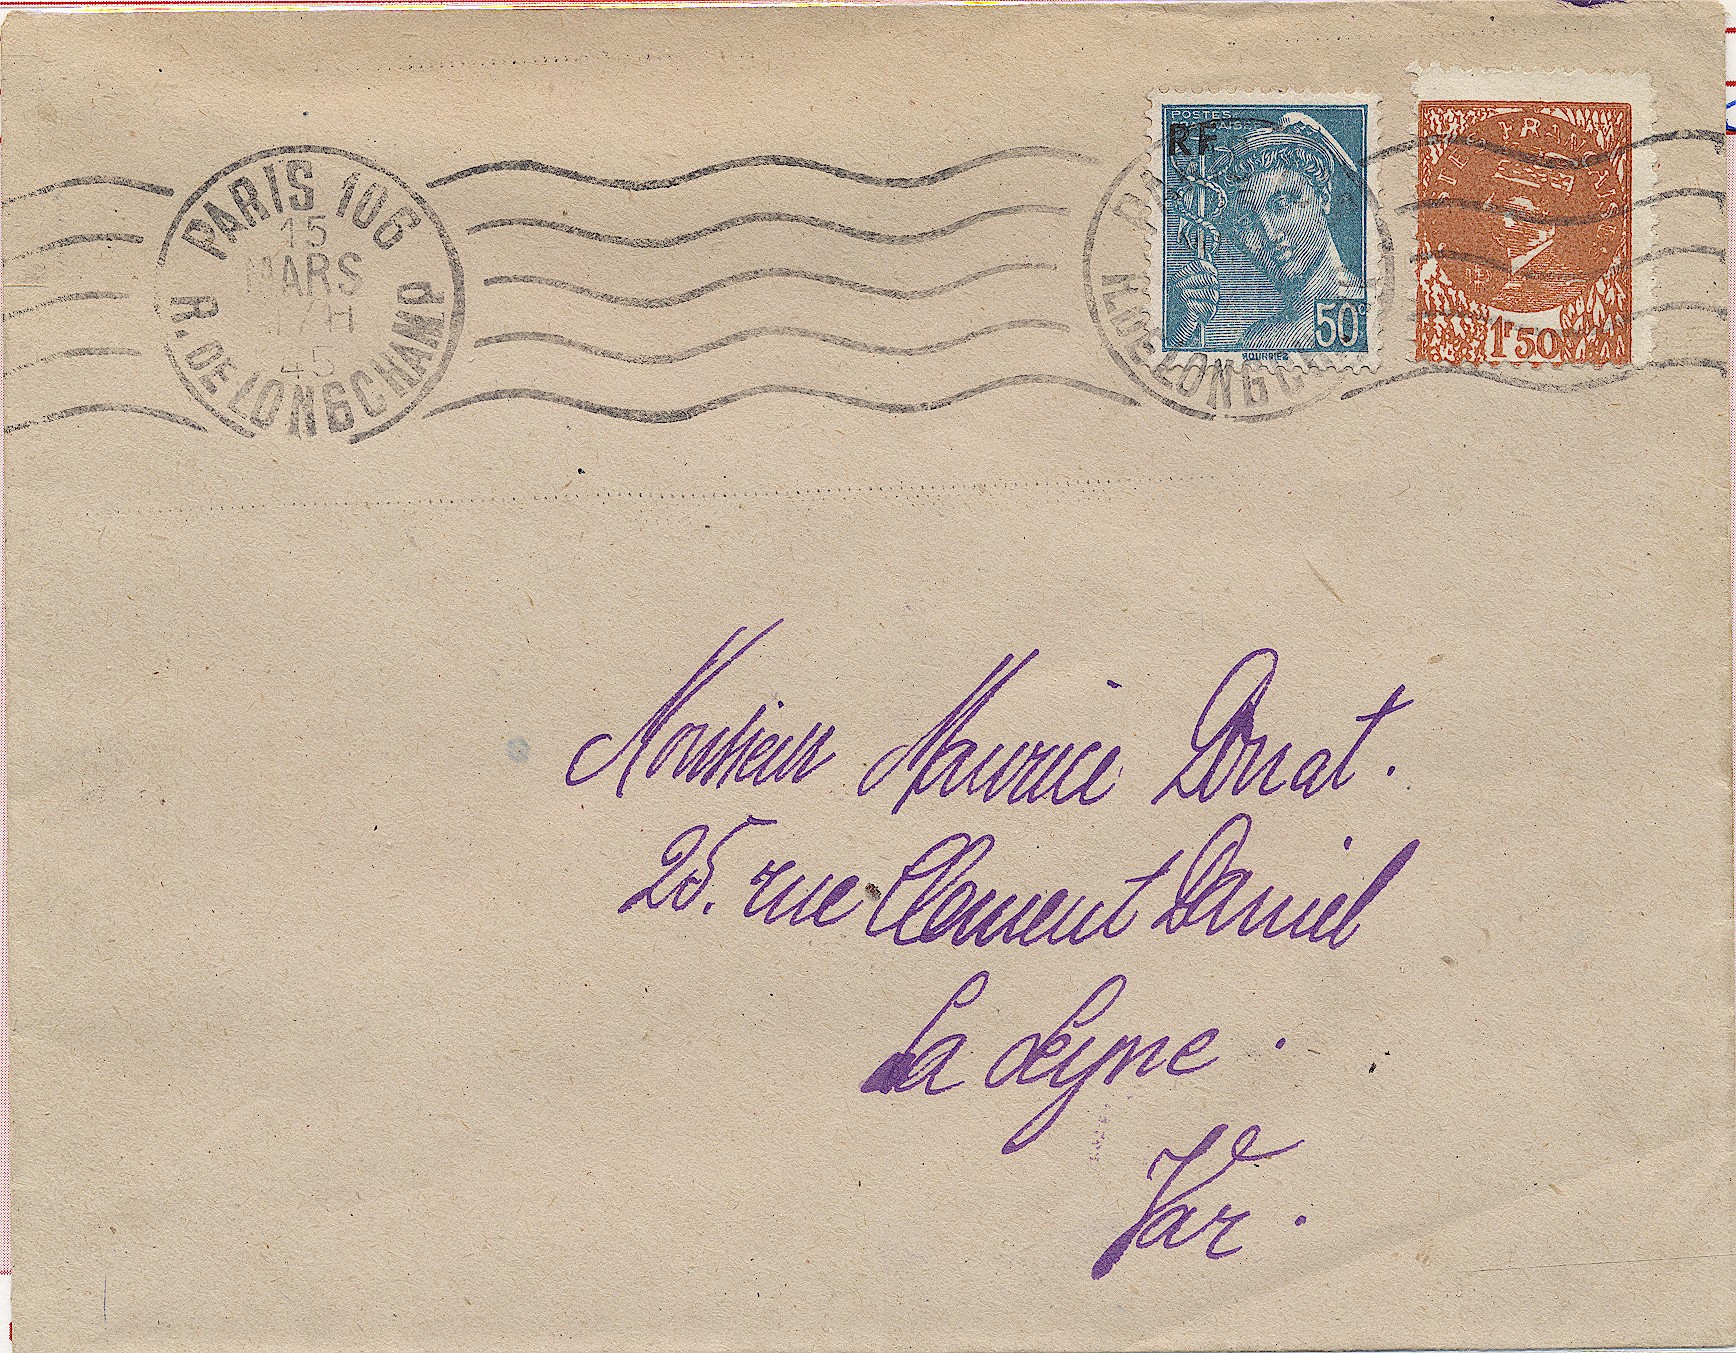 PARIS 106
15
MARS
45
R. DE LONGCHAMP
POSTES
FRANÇAISES
RF
50c
R. DE LONGCHAMP
POSTES FRANÇAISES
1F50
Monsieur Maurice Donat.
25. rue Clement Daniel
La Seyne.
Var.